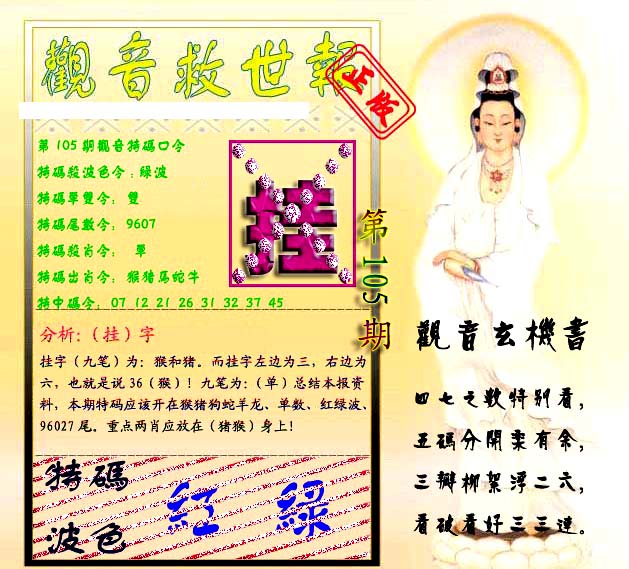 觀音救世報
正版
第105期觀音特碼口令
特碼殺波色令：綠波
特碼單雙令： 雙
特碼尾數令： 9607
特碼殺肖令： 單
特碼出肖令： 猴猪馬蛇牛
特中碼令： 07 12 21 26 31 32 37 45
挂
第105期
分析:（挂）字
挂字（九笔）为：猴和猪。而挂字左边为三，右边为
六，也就是说36（猴）！九笔为：（单）总结本报资
料，本期特码应该开在猴猪狗蛇羊龙、单数、红绿波、
96027尾。重点两肖应放在（猪猴）身上！
特碼
波色
紅 綠
觀音玄機書
四七之数特别看，
五碼分開来有余，
三瓣柳絮浮二六，
看破看好三三連。